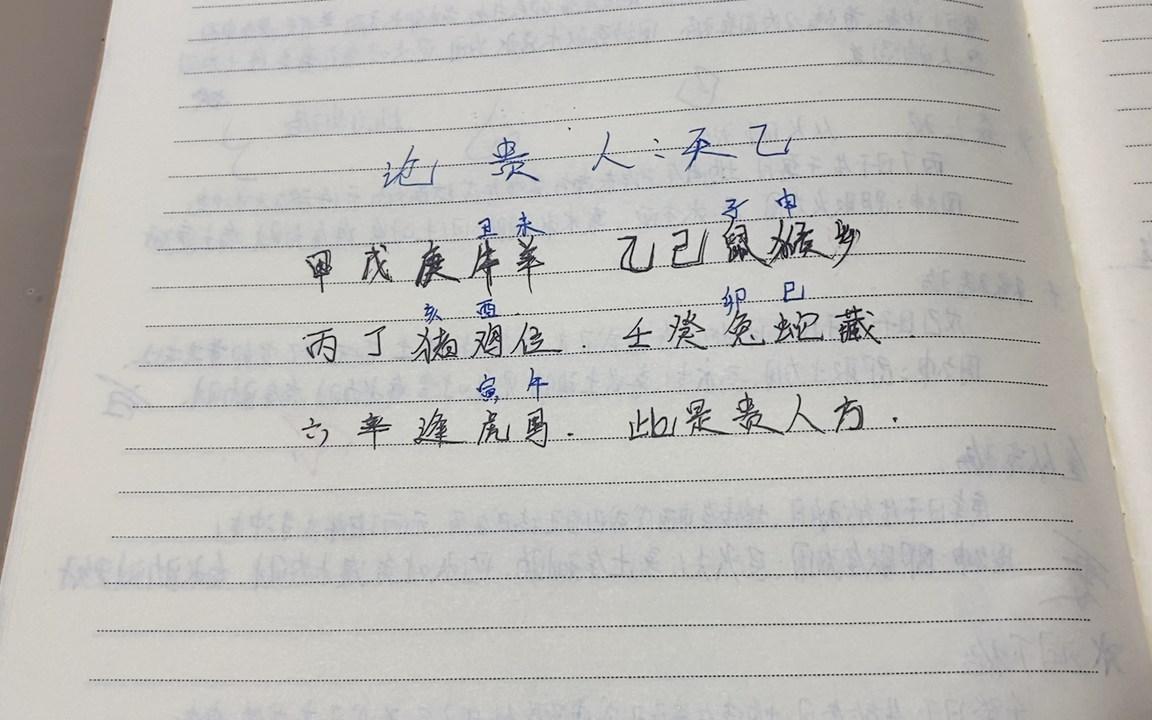 论 贵 人：天乙
丑 未 子 申
甲 戊 庚 牛 羊 乙 己 鼠 猴 乡
亥 酉 卯 巳
丙 丁 猪 鸡 位． 壬 癸 兔 蛇 藏．
寅 午
六 辛 逢 虎 马． 此 是 贵 人 方．